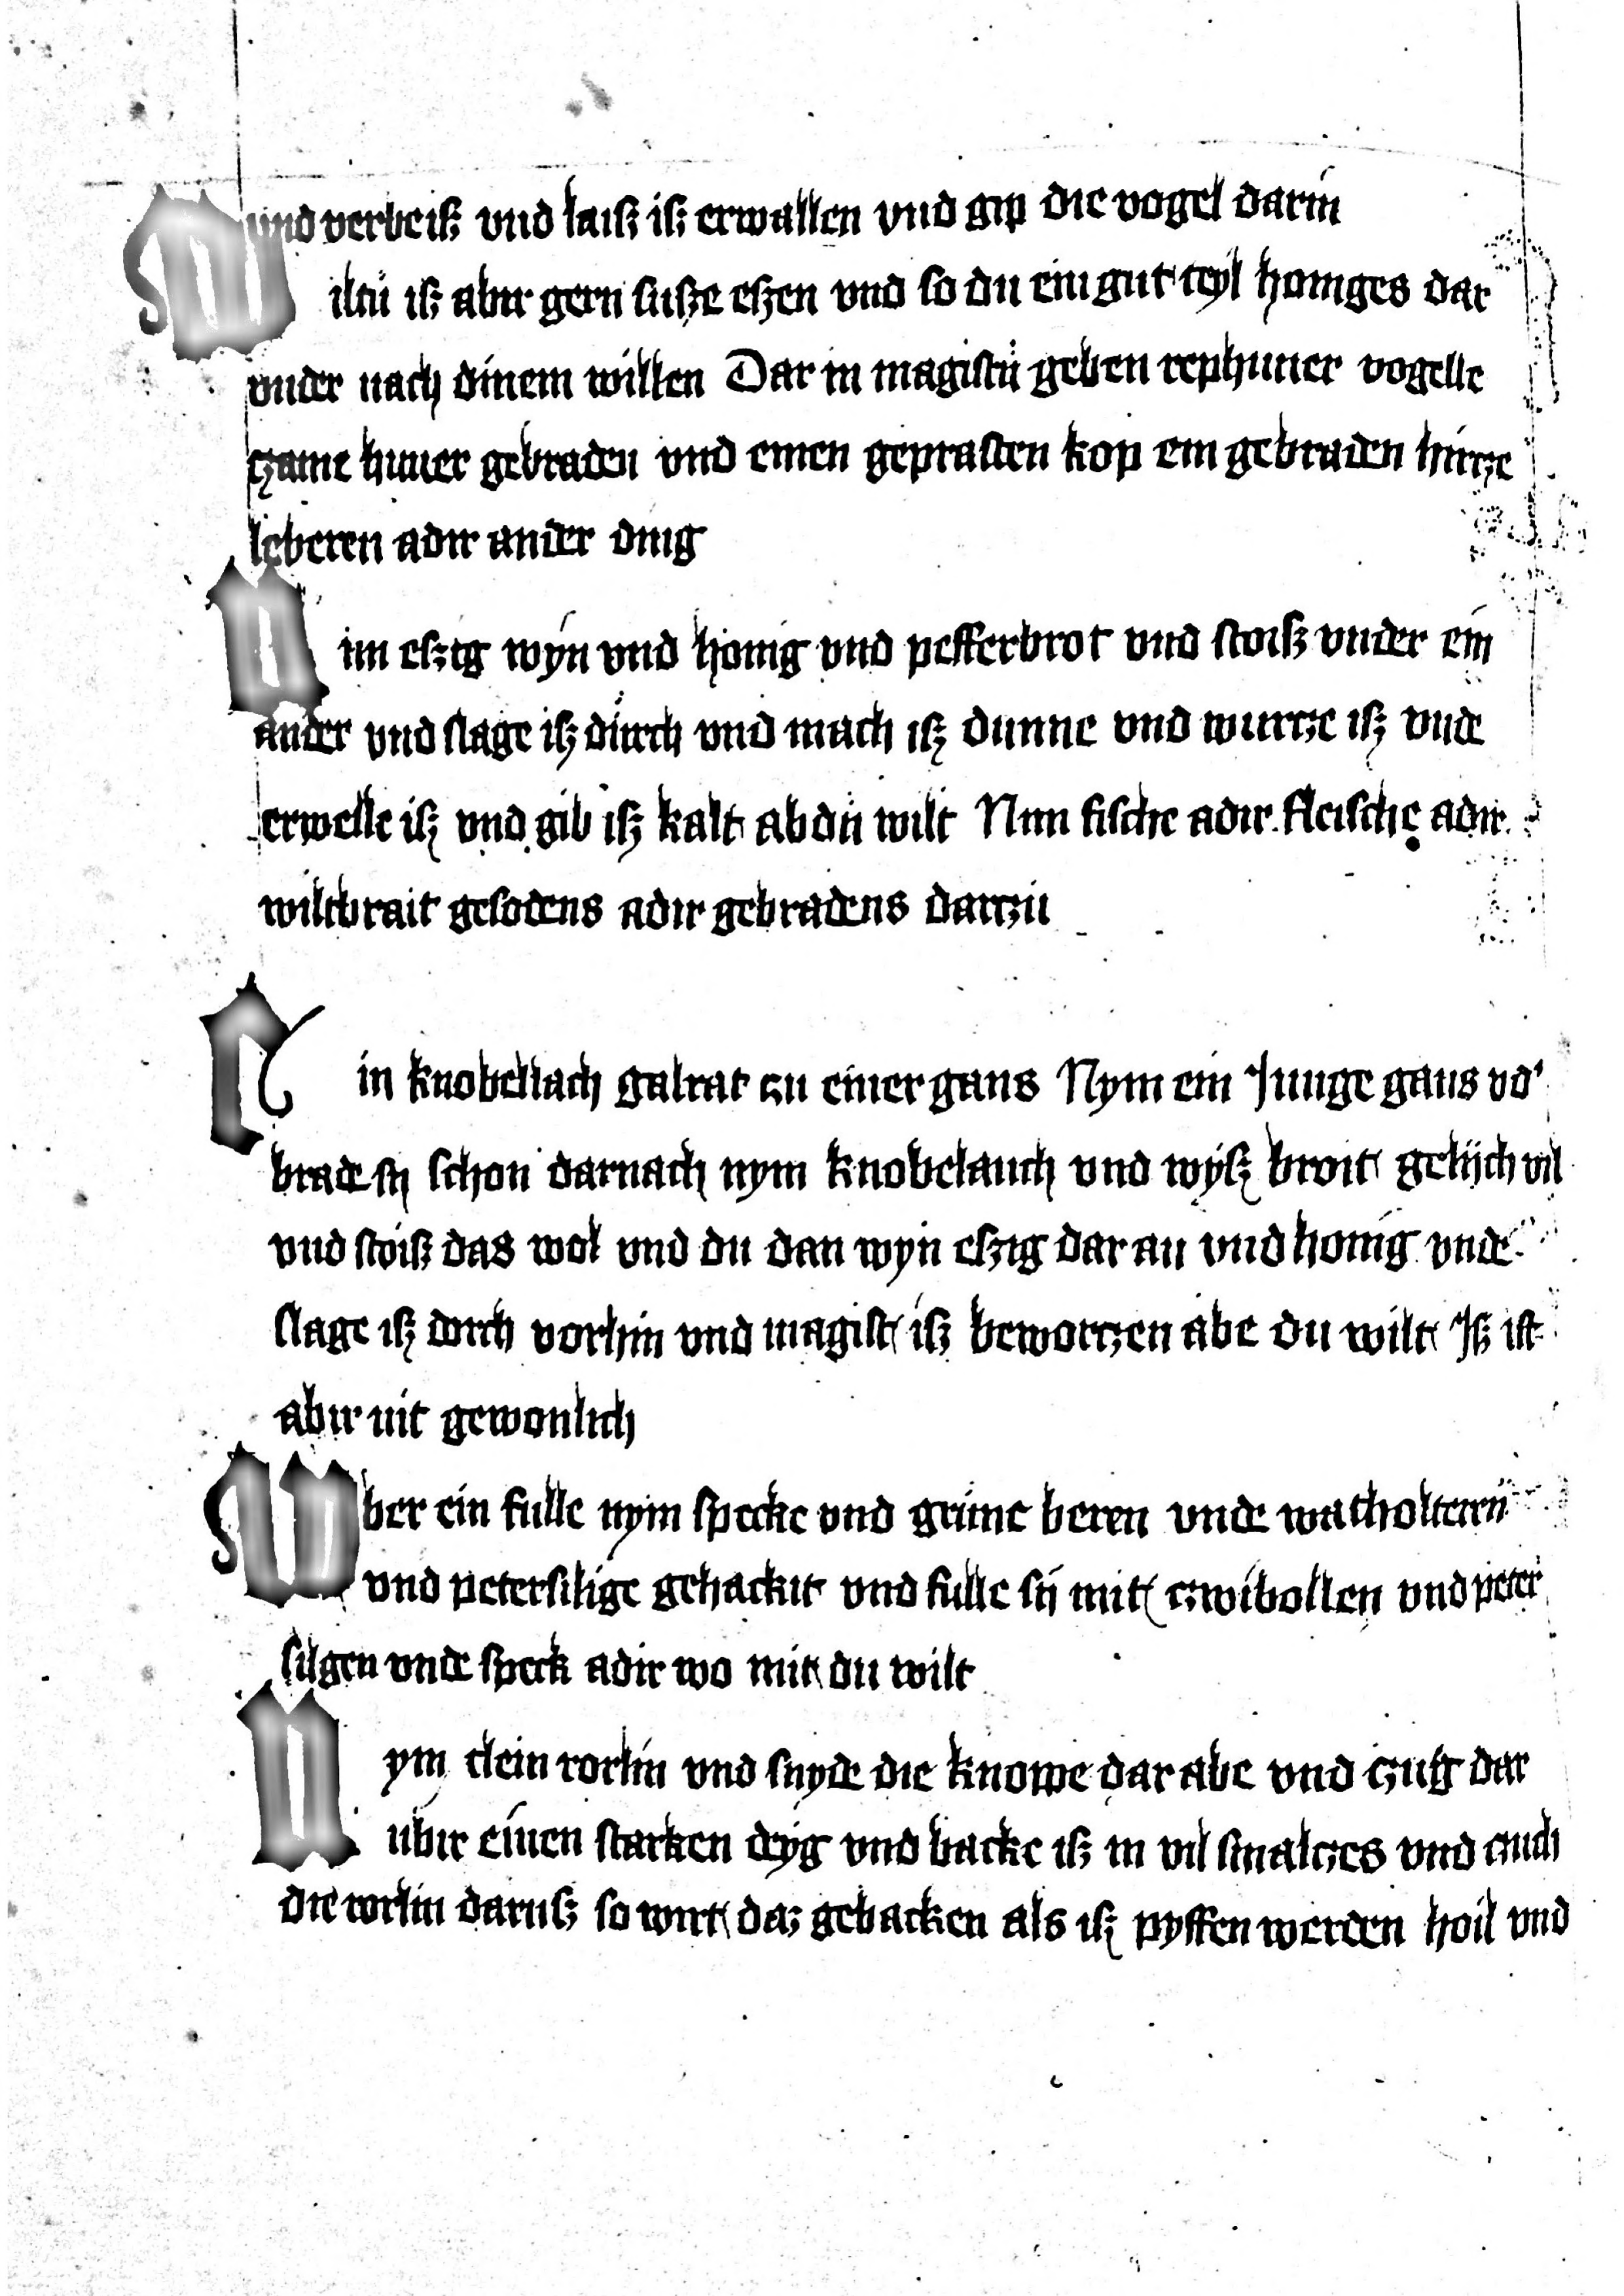 und verbeiß vnd laiß iß erwallen vnd gip die vogel darin
Wiltu iß abir gern susze eszen vnd so du ein gut teyl honiges dar
vnder nach dinem willen Dar in magistu geben rephuner vogelle
czame huner gebraden vnd einen geprasten kop ein gebraden hircze
leberen adir ander ding
Nim eszig wyn vnd honig vnd pefferbrot vnd stoiß vnder ein
ander vnd slage iß durch vnd mach iß dunne vnd wurcze iß vnde
erwelle iß vnd gib iß kalt ab du wilt Nim fische adir fleische adir
wiltbrait gesodens adir gebradens darczu
Ein knobellach galrat czu einer gans Nym ein Junge gans vnd
brade sy schon darnach nym knobelauch vnd wyß broit gelijch vil
vnd stoiß das wol vnd du dan wyn eszig dar an vnd honig vnde
slage iß dorch vorhin vnd magist iß beworczen abe du wilt Iß ist
abir nit gewonlich
Wber ein fulle nym specke vnd grune beren vnde wacholteren
vnd petersilige gehackit vnd fulle sij mit czwibollen vnd peter
silgen vnde speck adir wo mit du wilt
Nym clein rorlin vnd snyde die knoppe dar abe vnd czug dar
ubir einen starken deyg vnd backe iß in vil smalczes vnd czuch
die rorlin daruß so wirt daz gebacken als iß pyffen werden hoil vnd